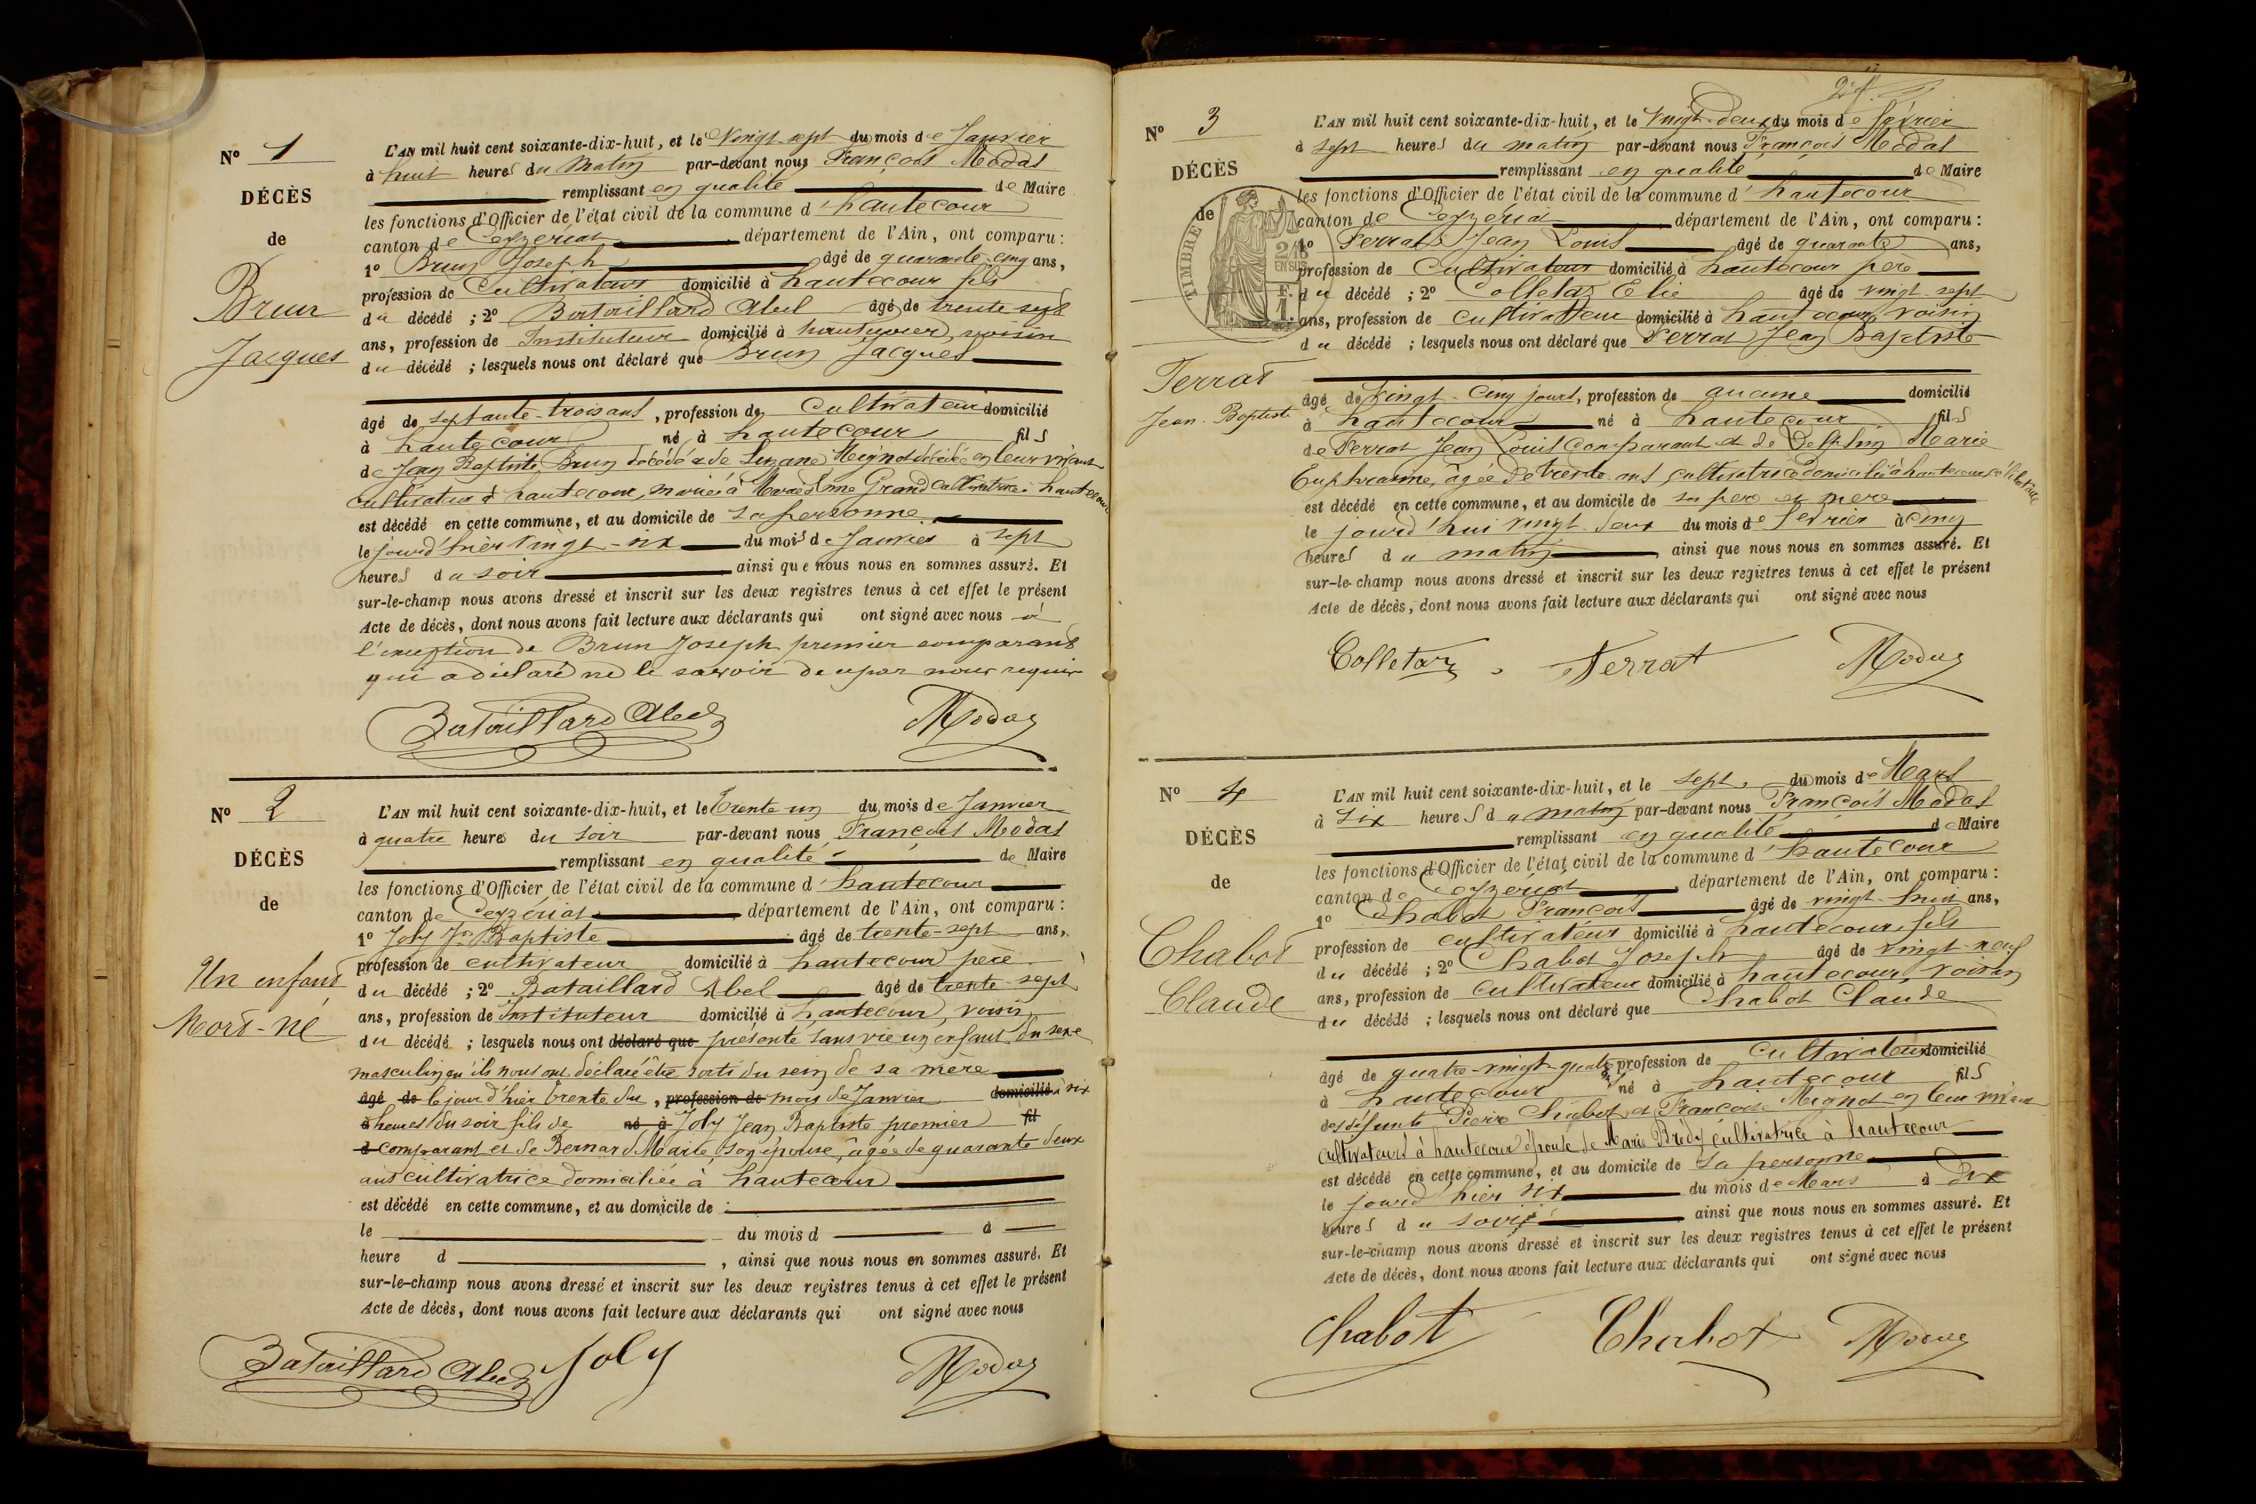 N° 1
DÉCÈS
de
Brun
Jacques
L'AN mil huit cent soixante-dix-huit, et le Vingt sept du mois de Janvier
à huit heures du matin par-devant nous François Modas
remplissant en qualité de Maire
les fonctions d'Officier de l'état civil de la commune d'hautecour
canton de Ceyzériat, département de l'Ain, ont comparu :
1° Brun Joseph âgé de quarante-cinq ans,
profession de Cultivateur domicilié à hautecour fils
du décédé ; 2° Bataillard Abel âgé de trente sept
ans, profession de Instituteur domicilié à hautecour, voisin
du décédé ; lesquels nous ont déclaré que Brun Jacques
âgé de septante-trois ans, profession de Cultivateur domicilié
à hautecour né à hautecour fils
de Jean Baptiste Brun décédé et de Suzane Mignot décédée en leur vivant
cultivateurs à hautecour, marié à Grand cultivatrice à hautecour
est décédé en cette commune, et au domicile de sa personne
le jourd'hier vingt-six du mois de Janvier à sept
heures du soir ainsi que nous nous en sommes assuré. Et
sur-le-champ nous avons dressé et inscrit sur les deux registres tenus à cet effet le présent
Acte de décès, dont nous avons fait lecture aux déclarants qui ont signé avec nous à
l'exeption de Brun Joseph premier comparant
qui a déclaré ne le savoir de nous requis
Bataillard Abel Modas
N° 2
DÉCÈS
de
Un enfant
Mort-né
L'AN mil huit cent soixante-dix-huit, et le Trente un du mois de Janvier
à quatre heures du soir par-devant nous François Modas
remplissant en qualité de Maire
les fonctions d'Officier de l'état civil de la commune d'hautecour
canton de Ceyzériat département de l'Ain, ont comparu :
1° Joly Jn Baptiste âgé de trente-sept ans,
profession de cultivateur domicilié à hautecour père
du décédé ; 2° Bataillard Abel âgé de trente-sept
ans, profession de Instituteur domicilié à hautecour, voisin
du décédé ; lesquels nous ont déclaré que présenté sans vie un enfant du sexe
masculin qu'ils nous ont déclaré être sorti du sein de sa mère
âgé de le jour d'hier trente du, profession de mois de Janvier domicilié à six
à heures du soir fils de né à Joly Jean Baptiste premier fil
d comparant et de Bernard Marie, son épouse, âgée de quarante deux
ans cultivatrice domiciliée à hautecour
est décédé en cette commune, et au domicile de
le du mois d à
heure d , ainsi que nous nous en sommes assuré. Et
sur-le-champ nous avons dressé et inscrit sur les deux registres tenus à cet effet le présent
Acte de décès, dont nous avons fait lecture aux déclarants qui ont signé avec nous
Bataillard Abel Joly Modas
N° 3
DÉCÈS
de
TIMBRE
2/10
EN SUS
F.
1.
Ferrat
Jean-Baptiste
L'AN mil huit cent soixante-dix-huit, et le Vingt-deux du mois de février
à sept heures du matin par-devant nous François Modas
remplissant en qualité de Maire
les fonctions d'Officier de l'état civil de la commune d'hautecour
canton de Ceyzériat département de l'Ain, ont comparu :
1° Ferrat Jean Louis âgé de quarante ans,
profession de Cultivateur domicilié à hautecour père
du décédé ; 2° Colletaz Elie âgé de vingt-sept
ans, profession de cultivateur domicilié à hautecour, voisin
du décédé ; lesquels nous ont déclaré que Ferrat Jean Baptiste
âgé de Vingt-cinq jours, profession de aucune domicilié
à hautecour né à hautecour fils
de Ferrat Jean Louis comparant et de Marie
Euphrasine, âgée de trente ans cultivatrice domiciliée à hautecour
est décédé en cette commune, et au domicile de ses père et mère
le jourd'hui vingt-deux du mois de février à cinq
heures du matin, ainsi que nous nous en sommes assuré. Et
sur-le-champ nous avons dressé et inscrit sur les deux registres tenus à cet effet le présent
Acte de décès, dont nous avons fait lecture aux déclarants qui ont signé avec nous
Colletaz Ferrat Modas
N° 4
DÉCÈS
de
Chabot
Claude
L'AN mil huit cent soixante-dix-huit, et le sept du mois de Mars
à six heures du matin par-devant nous François Modas
remplissant en qualité de Maire
les fonctions d'Officier de l'état civil de la commune d'hautecour
canton de Ceyzériat, département de l'Ain, ont comparu :
1° Chabot François âgé de vingt-huit ans,
profession de cultivateur domicilié à hautecour fils
du décédé ; 2° Chabot Joseph âgé de vingt-neuf
ans, profession de cultivateur domicilié à hautecour, voisin
du décédé ; lesquels nous ont déclaré que Chabot Claude
âgé de quatre-vingt-quatre profession de Cultivateur domicilié
à hautecour né à hautecour fils
des défunts Pierre Chabot et Françoise Mignot en leur vivant
cultivateurs à hautecour époux de Marie cultivatrice à hautecour
est décédé en cette commune, et au domicile de sa personne
le jourd'hier six du mois de Mars à dix
heures du soir ainsi que nous nous en sommes assuré. Et
sur-le-champ nous avons dressé et inscrit sur les deux registres tenus à cet effet le présent
Acte de décès, dont nous avons fait lecture aux déclarants qui ont signé avec nous
Chabot Chabot Modas